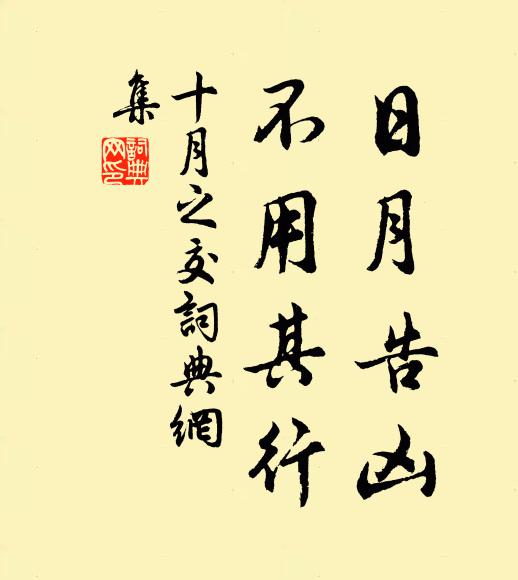 日月告凶
不用其行
十月之交詞典網
集
詞典
网印